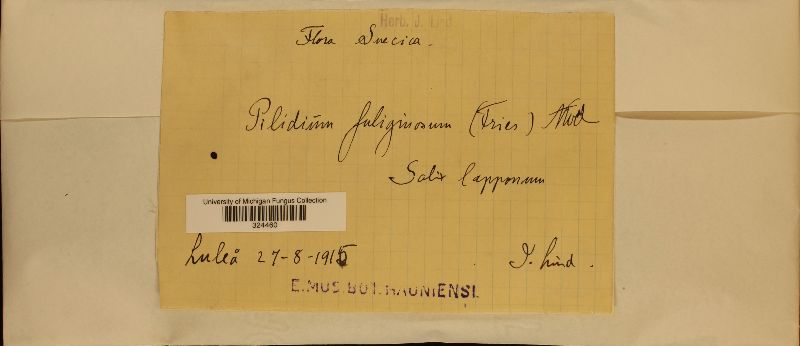 Herb. J. Lind.
Flora Suecica.
Pilidium fuliginosum (Fries) Awd
Salix lapponum
University of Michigan Fungus Collection
324460
Luleå 27-8-1915
J. Lind.
E. MUS. BOT. HAUNIENSI.